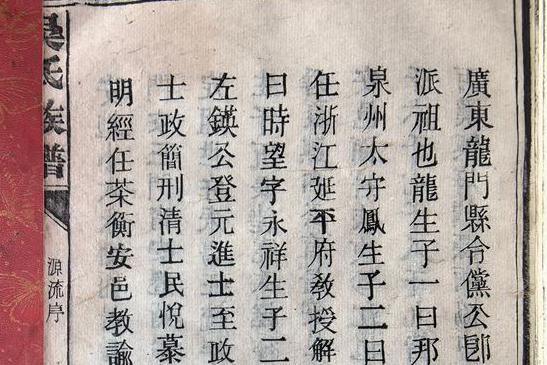 廣東龍門縣令儻公卽
派祖也龍生子一曰邦
泉州太守鳳生子二曰
任浙江延平府敎授解
曰時望字永祥生子二
左鍈公登元進士至政
士政簡刑清士民悅慕
明經任茶衡安邑教諭
吳氏族譜
源流序